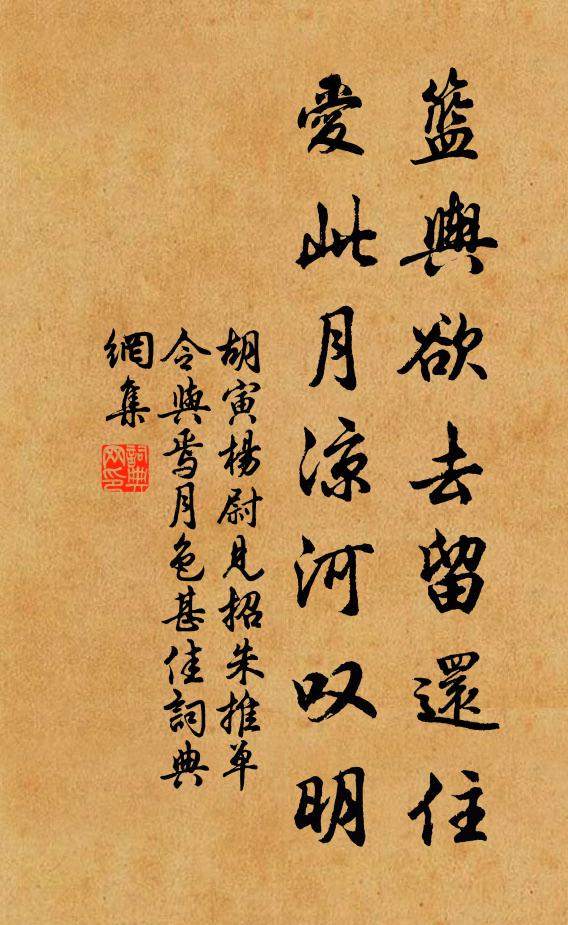 籃輿欲去留還住
愛此月涼河叹明
胡寅楊尉見招朱推单
令與焉月色甚佳詞典
網集
詞典
网印